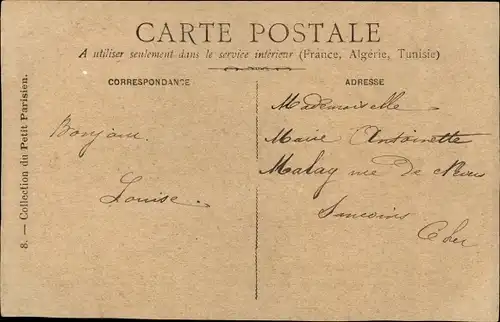 CARTE POSTALE
A utiliser seulement dans le service intérieur (France, Algérie, Tunisie)
CORRESPONDANCE
ADRESSE
8. — Collection du Petit Parisien.
Bonjour.
Louise.
Mademoiselle
Marie Antoinette
Malay rue de
Sancoins
Cher